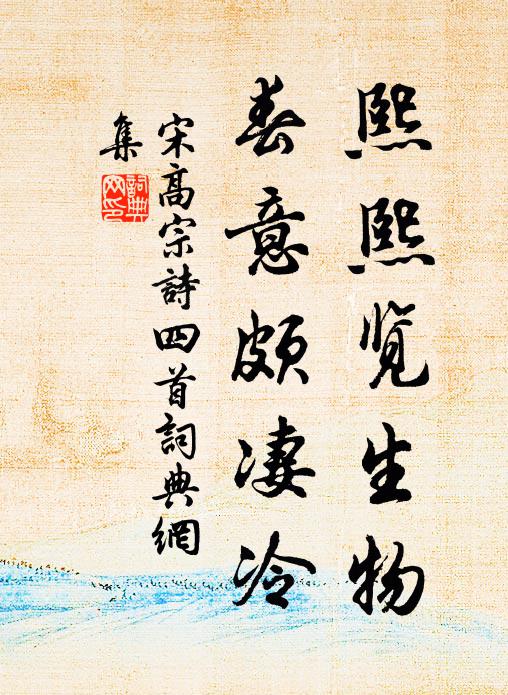 熙熙览生物
春意颇凄冷
宋高宗詩四首詞典網
集
詞典网印